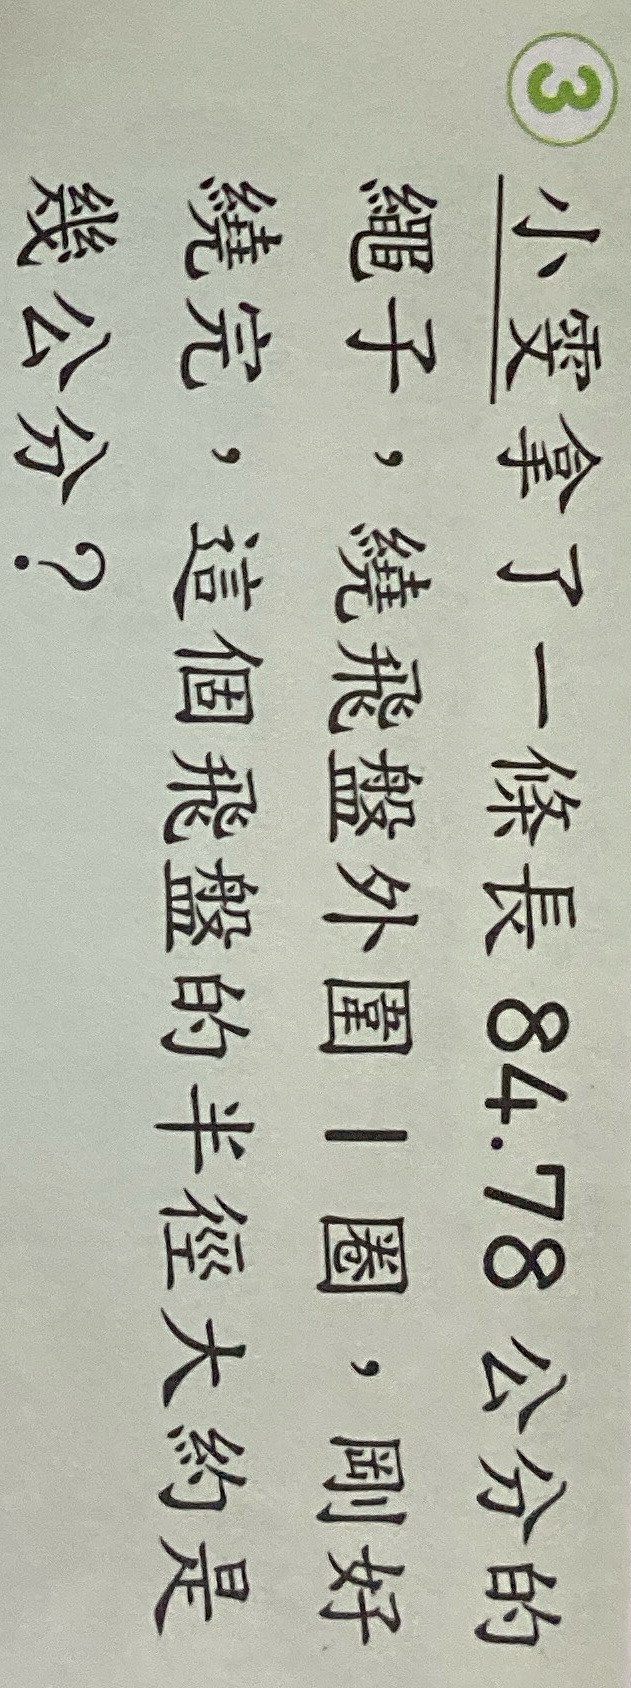 3 小雯拿了一條長 84.78 公分的
繩子，繞飛盤外圍 1 圈，剛好
繞完，這個飛盤的半徑大約是
幾公分？